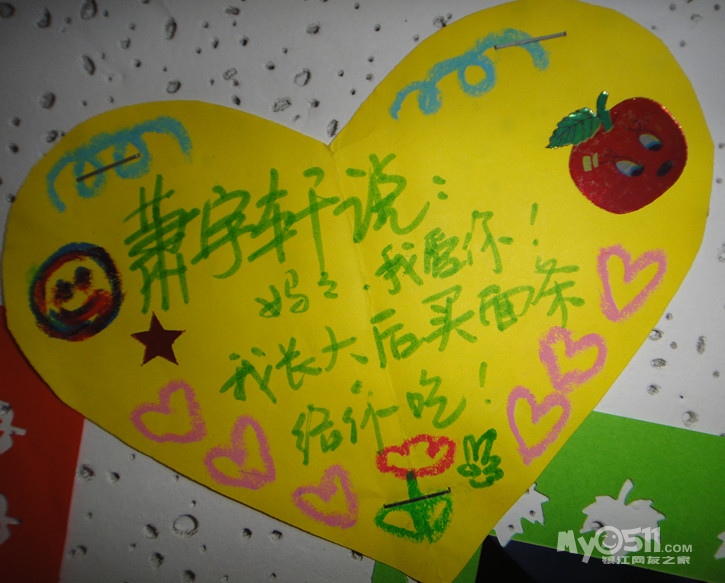 萧宇轩说：
妈妈，我爱你！
我长大后买面条
给你吃！
My0511.com
镇江网友之家